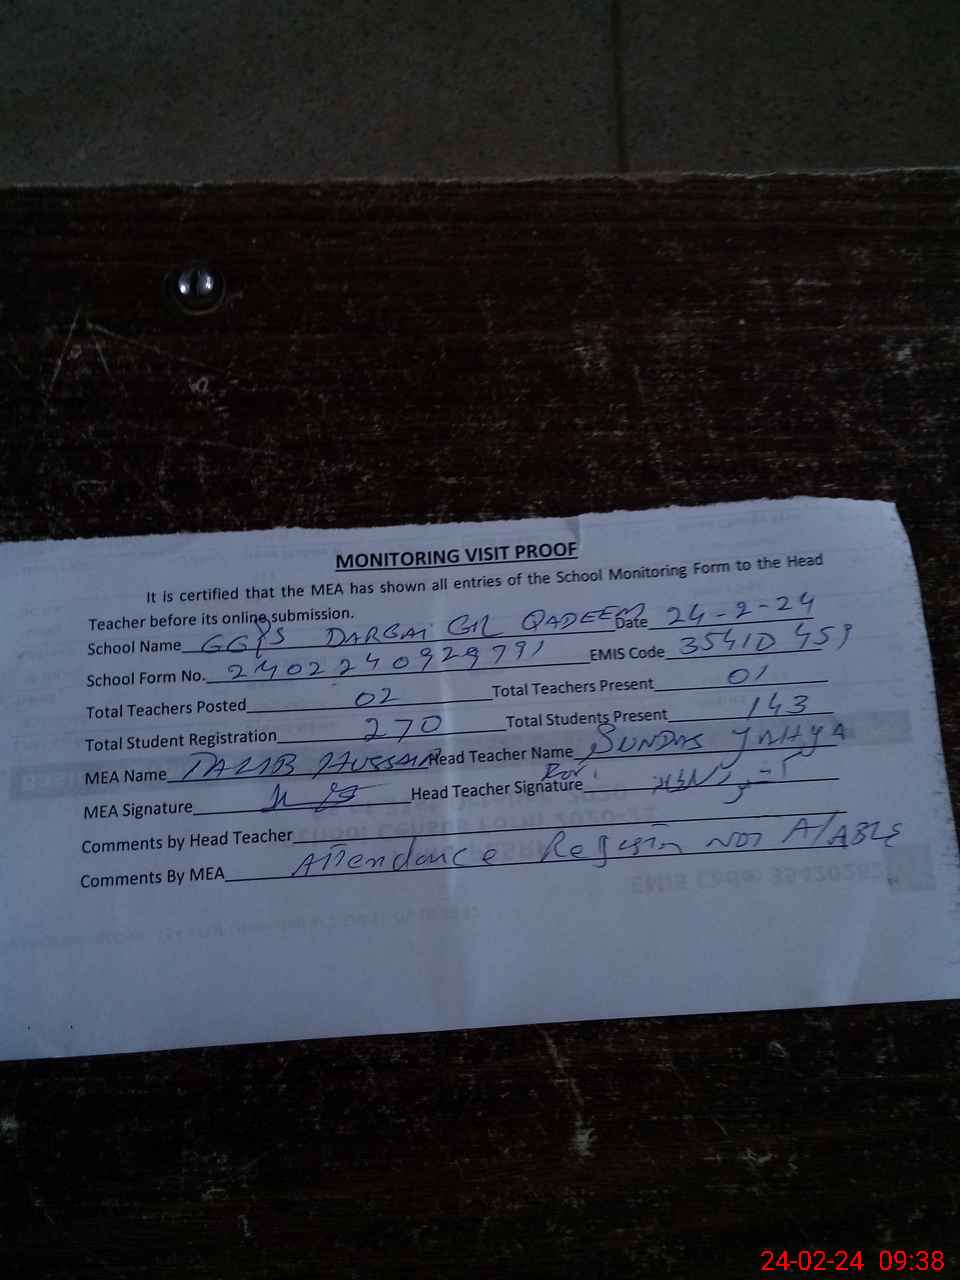 MONITORING VISIT PROOF
It is certified that the MEA has shown all entries of the School Monitoring Form to the Head
Teacher before its online submission.
School Name GGPS DARGAI GIL QADEEM Date 24-2-24
School Form No. 2402240929791 EMIS Code 35410459
Total Teachers Posted 02 Total Teachers Present 01
Total Student Registration 270 Total Students Present 143
MEA Name TALIB HUSSAIN Head Teacher Name SUNDAS YAHYA
MEA Signature Head Teacher Signature
Comments by Head Teacher
Comments By MEA Attendance Register NOT A/ABLE
24-02-24 09:38